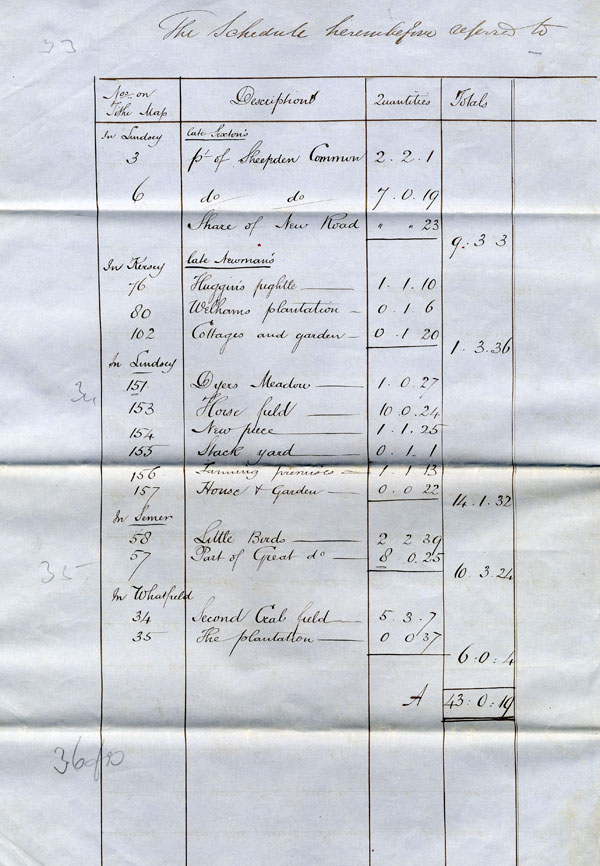 33
The Schedule hereinbefore referred to
Nos. on Tithe Map Descriptions Quantities Totals
In Lindsey late Sexton's
3 pt. of Sheepden Common 2 . 2 . 1
6 do do 7 . 0 . 19
Share of New Road " " 23
9 : 3 3
In Kersey late Newman's
76 Huggins pightle 1 . 1 . 10
80 Welhams plantation 0 . 1 . 6
102 Cottages and garden 0 . 1 20
1 . 3 . 36
In Lindsey
151 Dyers Meadow 1 . 0 . 27
153 Horse field 10 0 . 24
154 New piece 1 . 1 . 25
155 Stack yard 0 . 1 . 1
156 Farming premises 1 . 1 13
157 House & Garden 0 . 0 22
14 . 1 . 32
In Semer
58 Little Birds 2 2 39
57 Part of Great do 8 0 . 25
35
10 . 3 . 24
In Whatfield
34 Second Crab field 5 . 3 . 7
35 The plantation 0 0 37
6 : 0 : 4
A 43 : 0 : 19